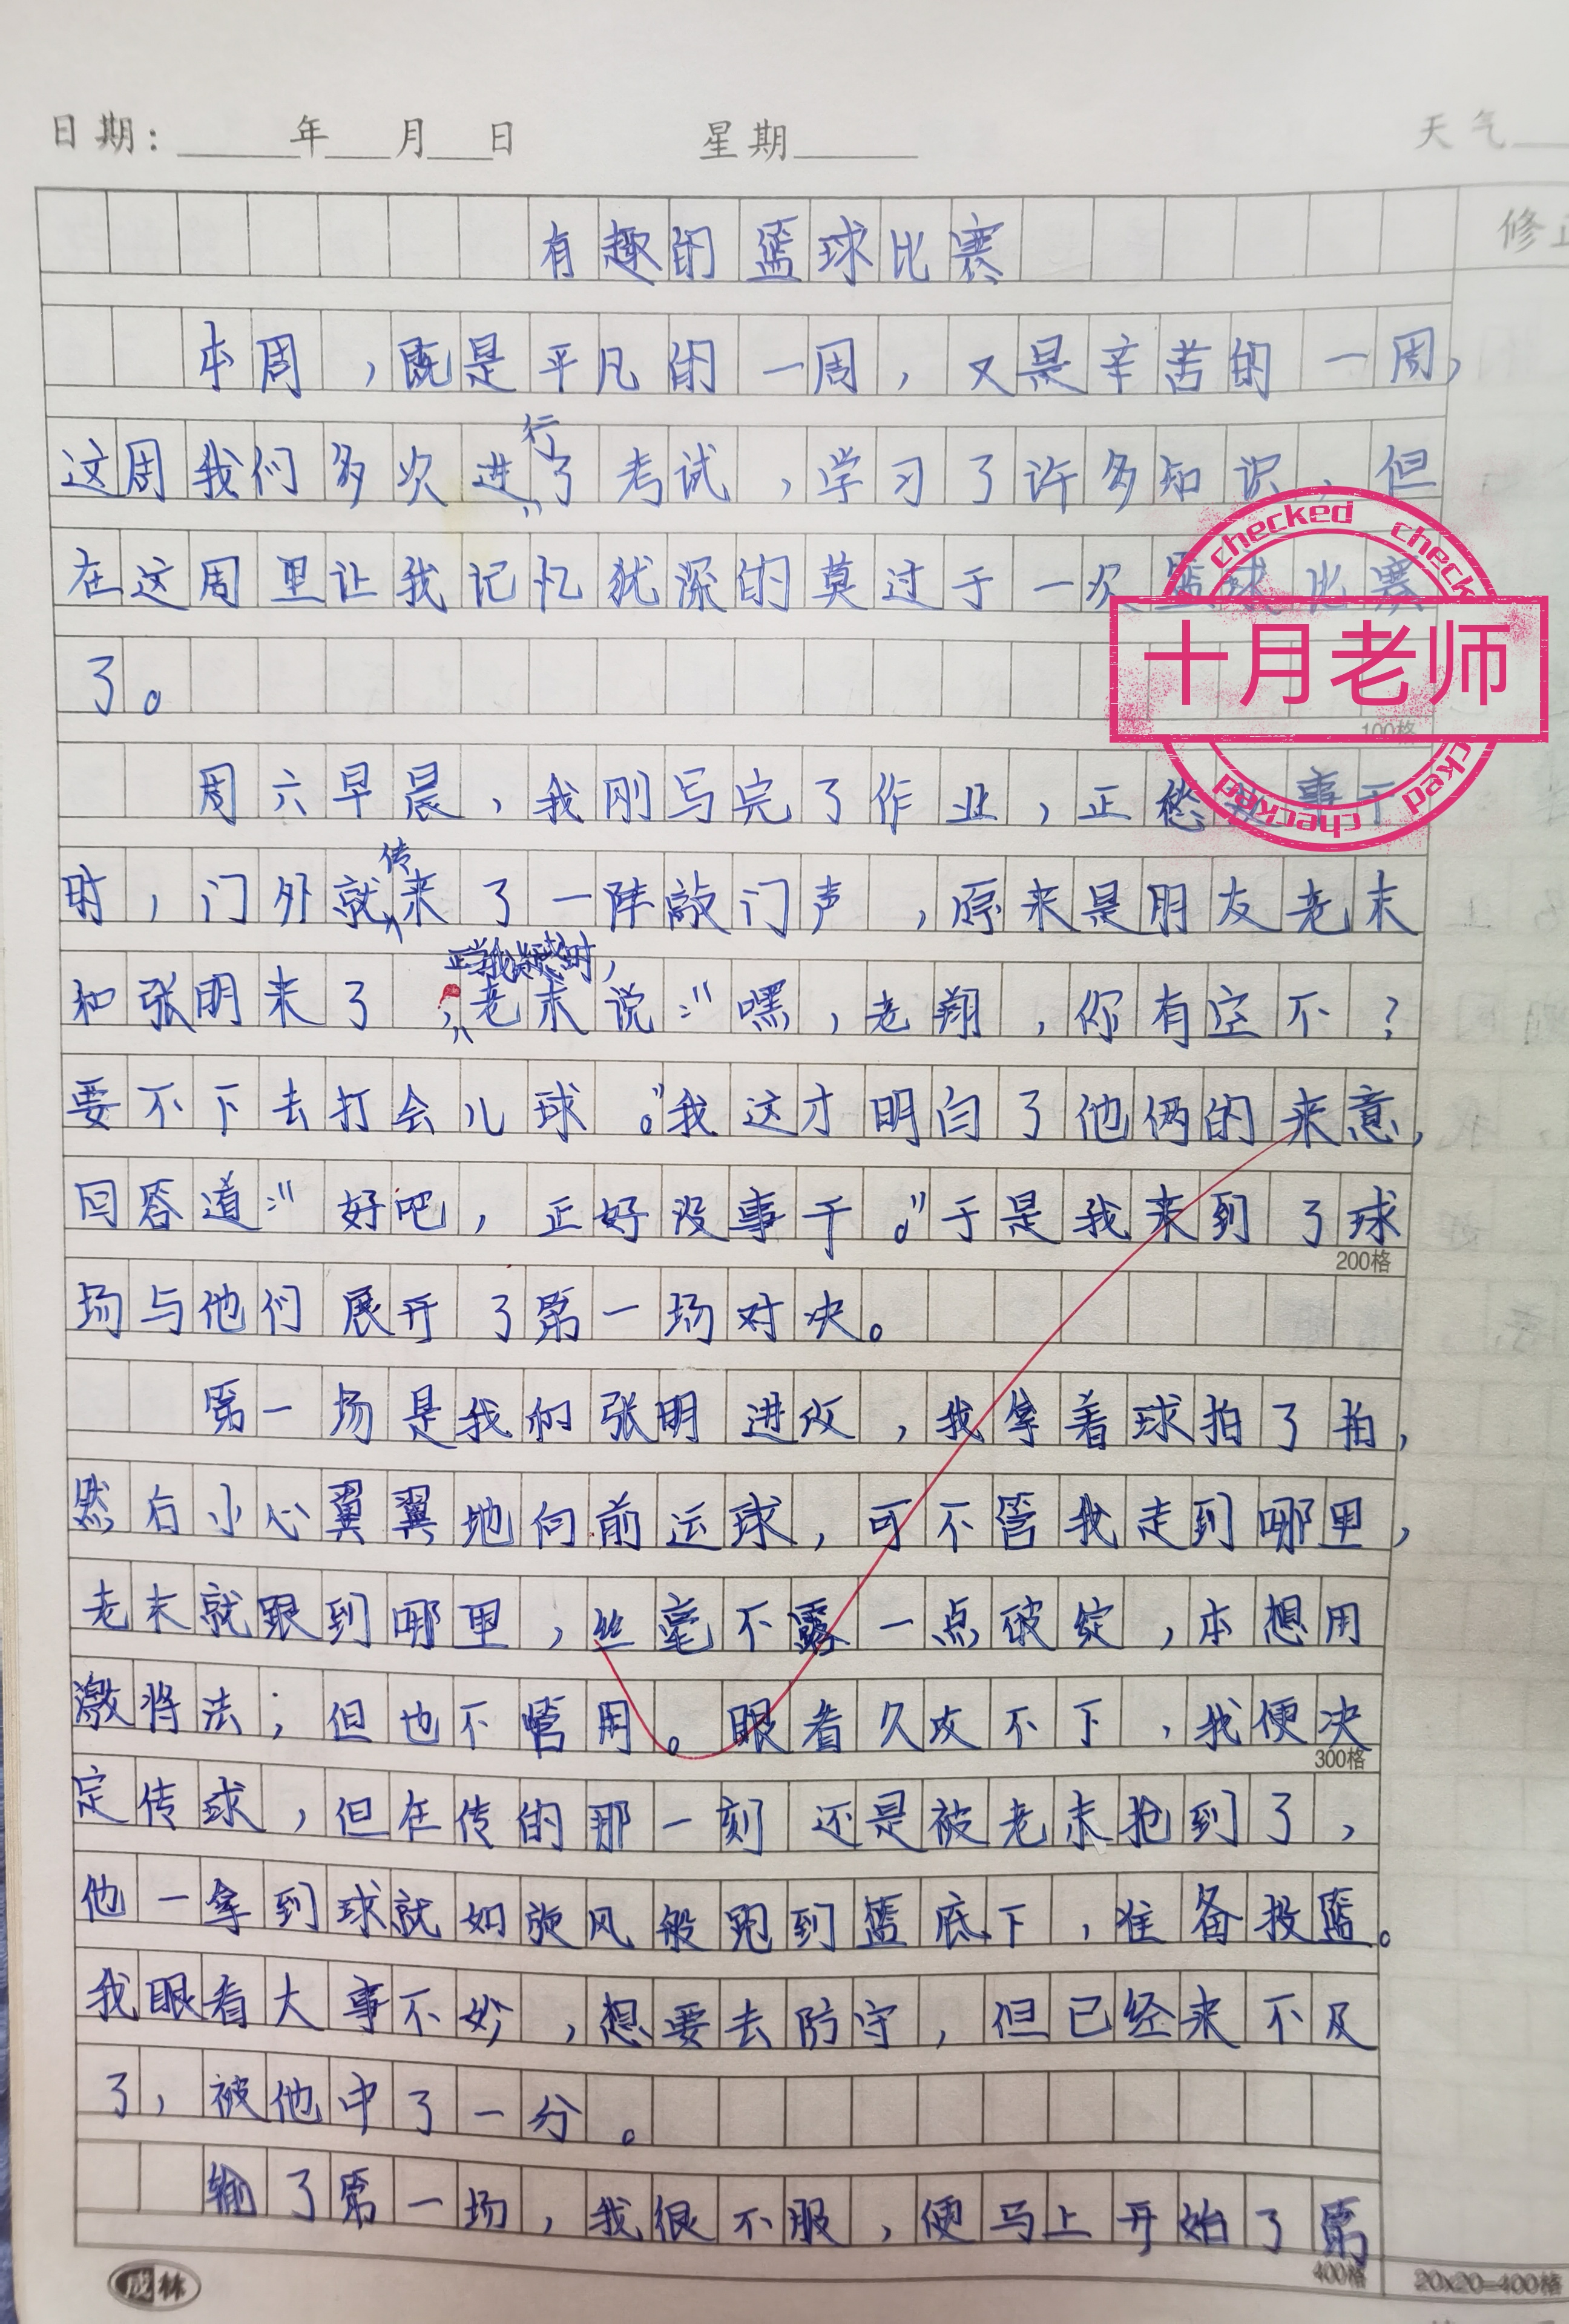 日期：____年___月___日 星期____ 天气
修正
有趣的篮球比赛
本周，既是平凡的一周，又是辛苦的一周，
这周我们多次进行了考试，学习了许多知识，但
在这周里让我记忆犹深的莫过于一次篮球比赛
了。
100格
周六早晨，我刚写完了作业，正愁没事干
时，门外就传来了一阵敲门声，原来是朋友老末
和张明来了，正当我疑惑时，老末说："嘿，老翔，你有空不？
要不下去打会儿球。"我这才明白了他俩的来意，
回答道："好吧，正好没事干。"于是我来到了球
200格
场与他们展开了第一场对决。
第一场是我们张明进攻，我拿着球拍了拍，
然后小心翼翼地向前运球，可不管我走到哪里，
老末就跟到哪里，丝毫不露一点破绽，本想用
激将法；但也不管用。眼看久攻不下，我便决
300格
定传球，但在传的那一刻还是被老末抢到了，
他一拿到球就如旋风般跑到篮底下，准备投篮。
我眼看大事不妙，想要去防守，但已经来不及
了，被他中了一分。
输了第一场，我很不服，便马上开始了第
400格
成林 20x20=400格
checked checked checked checked
十月老师